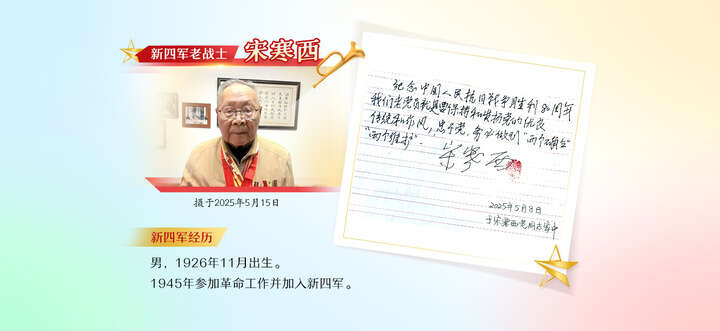 新四军老战士 宋寒西
摄于2025年5月15日
新四军经历
男，1926年11月出生。
1945年参加革命工作并加入新四军。
纪念中国人民抗日战争胜利80周年
我们老党员就是要保持和发扬党的优良
传统和作风，忠于党，务必做到"两个确立"
"两个维护"。
宋寒西
2025年5月8日
于宋寒西老同志家中